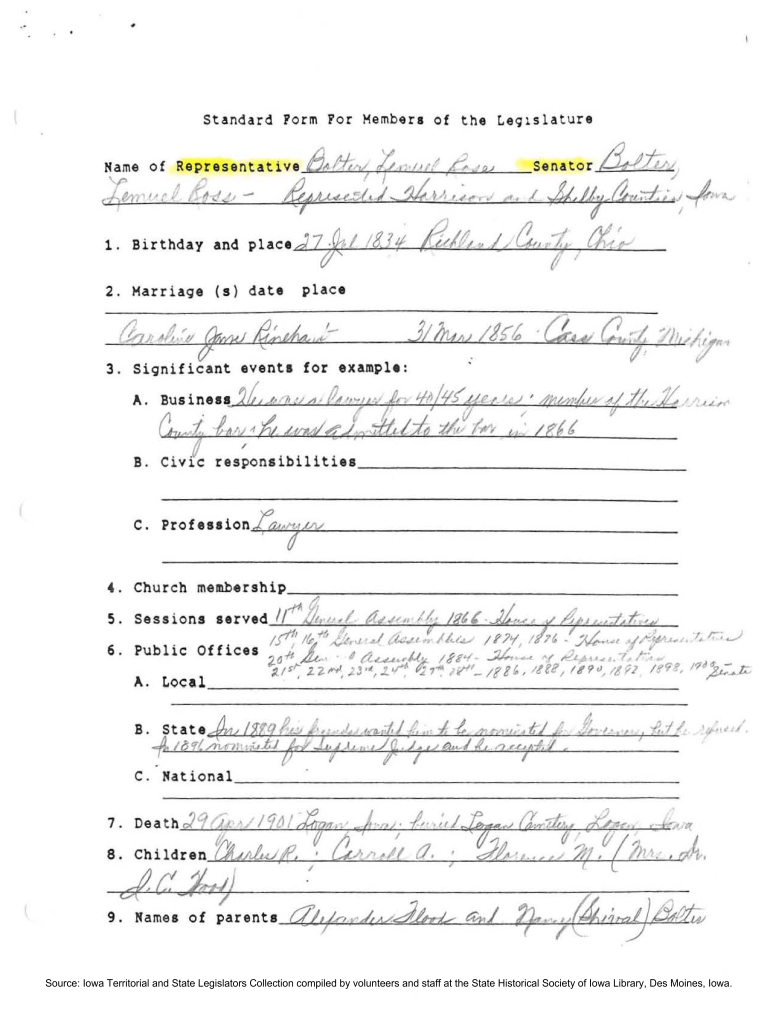 Standard Form For Members of the Legislature
Name of Representative Bolter, Lemuel Rose Senator Bolter,
Lemuel Ross - Represented Harrison and Shelby Counties, Iowa
1. Birthday and place 27 Jul 1834 Richland County, Ohio
2. Marriage (s) date place
Caroline Jane Rinehart 31 Mar 1856 Cass County, Michigan
3. Significant events for example:
A. Business He was a lawyer for 40/45 years; member of the Harrison
County bar; he was admitted to the bar in 1866
B. Civic responsibilities
C. Profession Lawyer
4. Church membership
5. Sessions served 11th General Assembly 1866 - House of Representatives
15th, 16th General Assemblies 1874, 1876 - House of Representatives
6. Public Offices
20th General Assembly 1884 - House of Representatives
21st, 22nd, 23rd, 24th, 27th, 28th - 1886, 1888, 1890, 1892, 1898, 1900 Senate
A. Local
B. State In 1889 his friends wanted him to be nominated for Governor, but he refused.
In 1896 nominated for Supreme Judge and he accepted.
C. National
7. Death 29 Apr 1901 Logan, Iowa; buried Logan Cemetery, Logan, Iowa
8. Children Charles R.; Carroll A.; Florence M. (Mrs. Dr.
I.C. Wood)
9. Names of parents Alexander Flood and Nancy (Shival) Bolter
Source: Iowa Territorial and State Legislators Collection compiled by volunteers and staff at the State Historical Society of Iowa Library, Des Moines, Iowa.